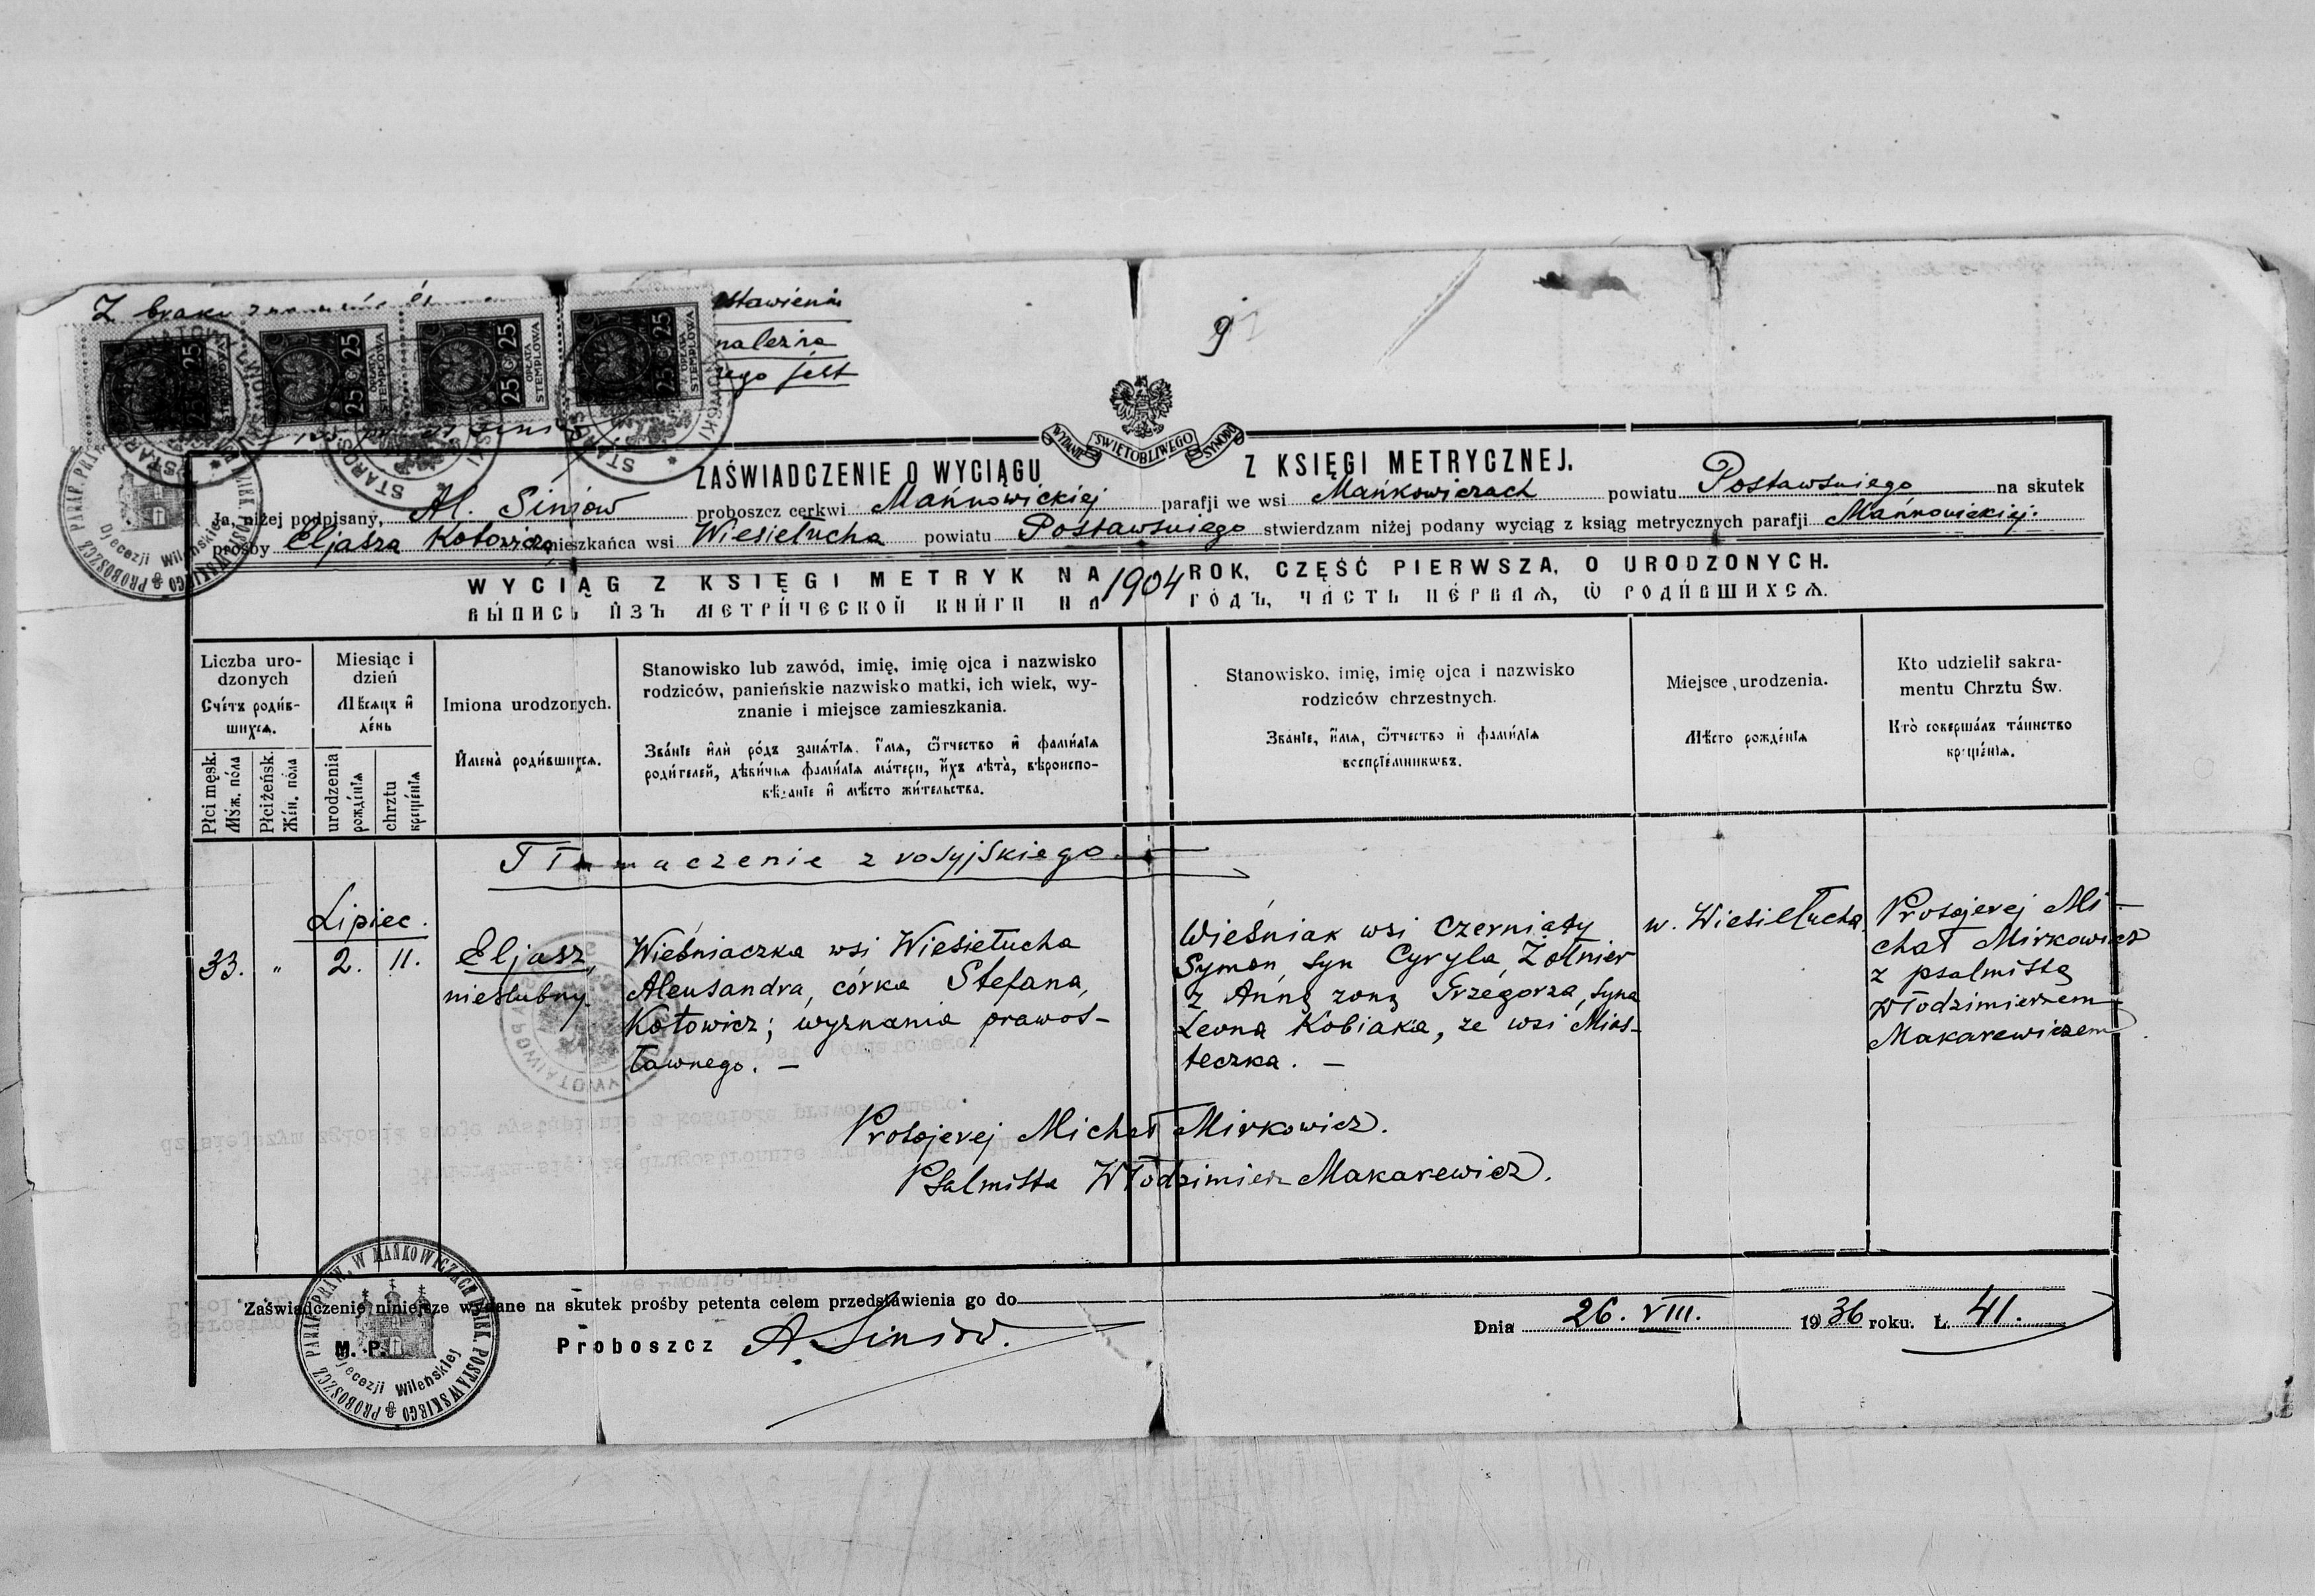 Z braku
stawienia
należna
ego jest
91
25 GR 25
OPŁATA
STEMPLOWA
25 GR 25
OPŁATA
STEMPLOWA
25 GR 25
OPŁATA
STEMPLOWA
25 GR 25
OPŁATA
STEMPLOWA
WYDANIE ŚWIĘTOBLIWEGO SYNODU
ZAŚWIADCZENIE O WYCIĄGU Z KSIĘGI METRYCZNEJ.
Ja, niżej podpisany, Al. Siniow proboszcz cerkwi Mańkowickiej parafji we wsi Mańkowiczach powiatu Postawskiego na skutek
prośby Eljasza Kotowicza mieszkańca wsi Wiesiełucha powiatu Postawskiego stwierdzam niżej podany wyciąg z ksiąg metrycznych parafji Mańkowickiej.
WYCIĄG Z KSIĘGI METRYK NA 1904 ROK, CZĘŚĆ PIERWSZA, O URODZONYCH.
ВЫ́ПИСЬ И҆ЗЪ МЕТРИ́ЧЕСКОЙ КНИ́ГИ НА ГО́ДЪ, ЧА́СТЬ ПЕ́РВАѦ, Ѡ҆ РОДИ́ВШИХСѦ.
Liczba uro-
dzonych
Сче́тъ роди́в-
шихсѧ.
Płci męsk.
Мꙋ́ж. по́ла
Płci żeńsk.
Же́н. по́ла
Miesiąc i
dzień
Мѣ́сѧцъ и҆
де́нь
urodzenia
рожде́нїѧ
chrztu
креще́нїѧ
Imiona urodzonych.
И҆мена̀ роди́вшихсѧ.
Stanowisko lub zawód, imię, imię ojca i nazwisko
rodziców, panieńskie nazwisko matki, ich wiek, wy-
znanie i miejsce zamieszkania.
Зва́нїе и҆лѝ ро́дъ занѧ́тїѧ, и҆́мѧ, ѻ҆́тчество и҆ фами́лїѧ
роди́телей, дѣви́чьѧ фами́лїѧ ма́тери, и҆́хъ лѣ́та, вѣроиспо-
вѣ́данїе и҆ мѣ́сто жи́тельства.
Stanowisko, imię, imię ojca i nazwisko
rodziców chrzestnych.
Зва́нїе, и҆́мѧ, ѻ҆́тчество и҆ фами́лїѧ
воспрїе́мникѡвъ.
Miejsce urodzenia.
Мѣ́сто рожде́нїѧ
Kto udzielił sakra-
mentu Chrztu Św.
Кто̀ соверша́лъ та́инство
креще́нїѧ.
Tłumaczenie z rosyjskiego.
33.
"
Lipiec.
2. 11.
Eljasz,
nieślubny.
Wieśniaczka wsi Wiesiełucha
Aleksandra, córka Stefana,
Kotowicz; wyznania prawos-
ławnego. —
Wieśniak wsi Czerniaty
Symon, syn Cyryla, Żołnier
z Anną żoną Grzegorza, syna
Leona Kobiaka, ze wsi Mias-
teczka. —
w. Wiesiełucha
Protojerej Mi-
chał Mirkowicz
z psalmistą
Włodzimierzem
Makarewiczem
Protojerej Michał Mirkowicz.
Psalmista Włodzimierz Makarewicz.
Zaświadczenie niniejsze wydane na skutek prośby petenta celem przedstawienia go do
M. P.
Proboszcz A. Siniow.
Dnia 26. VIII. 1936 roku. Ł. 41.
PROBOSZCZ PARAF. PRAW. W MAŃKOWICZACH POSTAWSKIEGO
Djecezji Wileńskiej